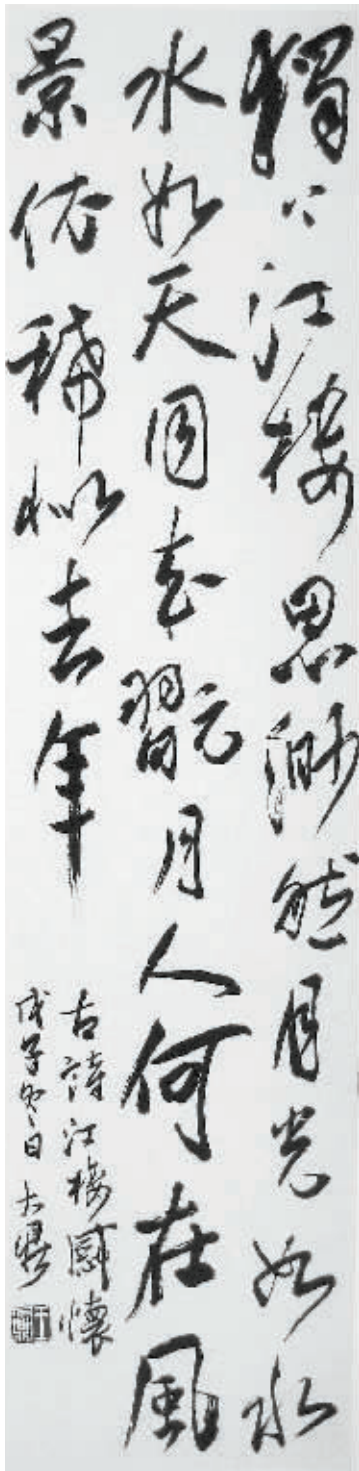 獨上江樓思渺然月光如水
水如天同來翫月人何在風
景依稀似去年
古詩江樓感懷
戊子冬日大